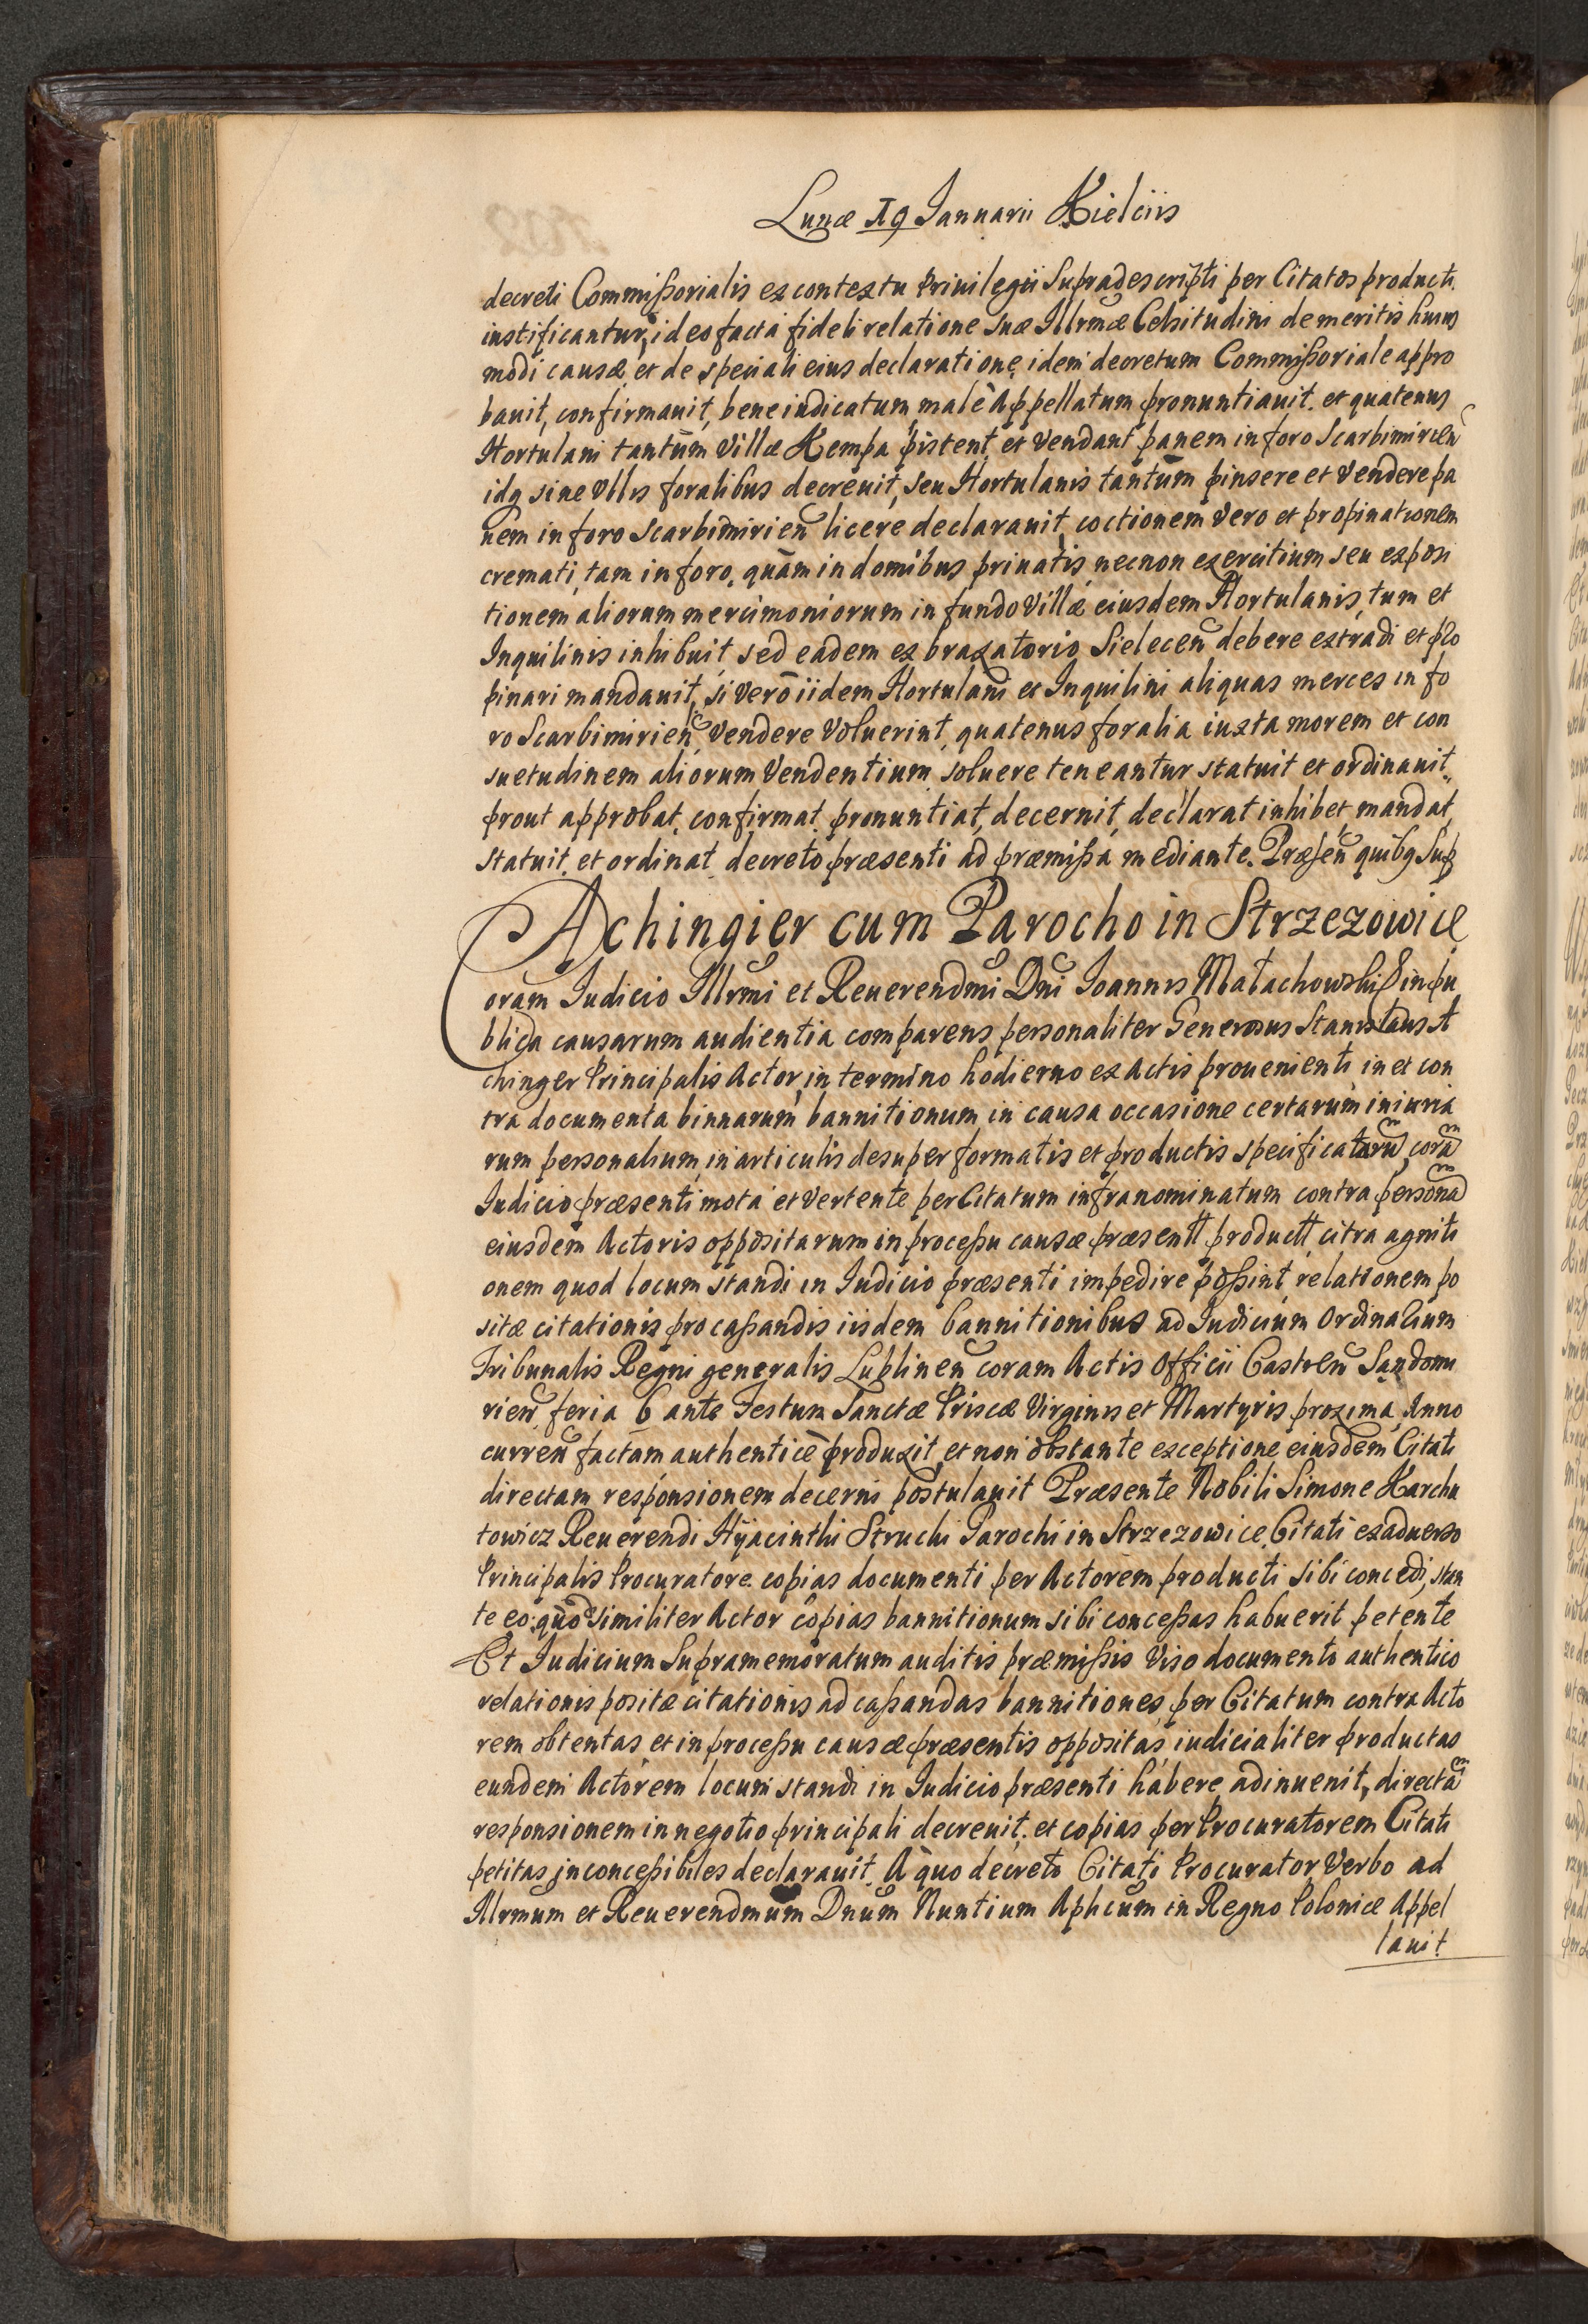 Lunæ 19 Januarii Kielciis
decreti Commißorialis ex contextu Priuilegii Supradescripti per Citatos producti
iustificantur, ideo facta fideli relatione suæ Illrmæ Celsitudini de meritis huius
modi causæ et de speciali eius declaratione idem decretum Commißoriale appro
bauit, confirmauit, bene iudicatum malè Appellatum pronuntiauit. et quatenus
Hortulani tantùm Villæ Kempa pistent et Vendant panem in foro Scarbimirien
idq sine Vllis foralibus decreuit, seu Hortulanis tantùm pinsere et Vendere pa
nem in foro Scarbimirien licere declarauit, coctionem Vero et propinationem
cremati, tam in foro, quàm in domibus priuatis, necnon exercitium seu exposi
tionem aliorum mercimoniorum in fundo Villæ eiusdem Hortulanis, tum et
Inquilinis inhibuit, sed eadem ex braxatorio Sielecen debere extradi et pro
pinari mandauit, si Verò iidem Hortulani et Inquilini aliquas merces in fo
ro Scarbimirien Vendere Voluerint, quatenus foralia iuxta morem et con
suetudinem aliorum Vendentium soluere teneantur statuit et ordinauit.
prout approbat, confirmat, pronuntiat, decernit, declarat inhibet, mandat,
statuit, et ordinat decreto præsenti ad præmißa mediante. Præsen quibq Sup
Achingier cum Parocho in Strzezowice
Coram Judicio Illrmi et Reuerendmi Dni Joannis Małachowski E in pu
blica causarum audientia comparens personaliter Generosus Stanislaus A
chinger Principalis Actor, in termino hodierno ex Actis prouenienti in et con
tra documenta binnarum bannitionum in causa occasione certarum iniuria
rum personalium, in articulis desuper formatis et productis specificatarum, coram
Judicio præsenti mota et Vertente per Citatum infranominatum contra personam
eiusdem Actoris oppositarum in proceßu causæ præsentt productt, citra agniti
onem quod locum standi in Judicio præsenti impedire poßint, relationem po
sitæ citationis pro caßandis iisdem bannitionibus ad Judicium Ordinarium
Tribunalis Regni generalis Lublinen coram Actis Officii Castren Sandomi
rien feria 6 ante Festum Sanctæ Priscæ Virginis et Martyris proxima, Anno
curren factam authenticè produxit, et non obstante exceptione eiusdem Citati
directam responsionem decerni postulauit Præsente Nobili Simone Karchu
towicz Reuerendi Hyacinthi Struchi Parochi in Strzezowice, Citati ex aduerso
Principalis Procuratore copias documenti per Actorem producti sibi concedi, stan
te eo: quod similiter Actor copias bannitionum sibi conceßas habuerit petente
Et Judicium Supramemoratum auditis præmißis Viso documento authentico
relationis positæ citationis ad caßandas bannitiones per Citatum contra Acto
rem obtentas et in proceßu causæ præsentis oppositas iudicialiter productas
eundem Actorem locum standi in Judicio præsenti habere adinuenit, directam
responsionem in negotio principali decreuit. et copias per Procuratorem Citati
petitas inconceßibiles declarauit. A quo decreto Citati Procurator Verbo ad
Illrmum et Reuerendmum Dnum Nuntium Aplicum in Regno Poloniæ Appel
lauit